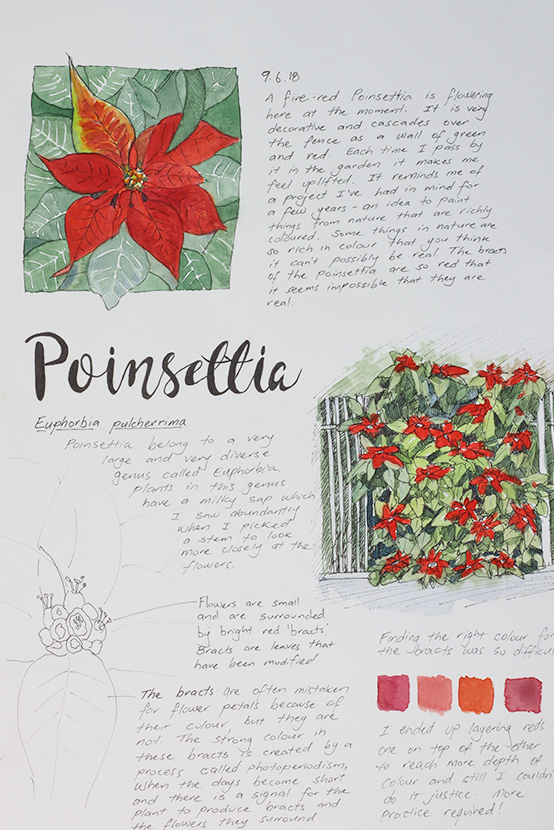 9.6.18
A fire-red Poinsettia is flowering
here at the moment. It is very
decorative and cascades over
the fence as a wall of green
and red. Each time I pass by
it in the garden it makes me
feel uplifted. It reminds me of
a project I've had in mind for
a few years - an idea to paint
things from nature that are richly
coloured. Some things in nature are
so rich in colour that you think
it can't possibly be real. The bracts
of the poinsettia are so red that
it seems impossible that they are
real.
Poinsettia
Euphorbia pulcherrima
Poinsettia belong to a very
large and very diverse
genus called Euphorbia
plants in this genus
have a milky sap which
I saw abundantly
when I picked
a stem to look
more closely at the
flowers.
Flowers are small
and are surrounded
by bright red 'bracts'.
Bracts are leaves that
have been modified
The bracts are often mistaken
for flower petals because of
their colour, but they are
not. The strong colour in
these bracts is created by a
process called photoperiodism,
when the days become short
and there is a signal for the
plant to produce bracts and
the flowers they surround.
Finding the right colour for
the bracts was so difficul
I ended up layering reds
one on top of the other
to reach more depth of
colour and still I couldn
do it justice. More
practice required!